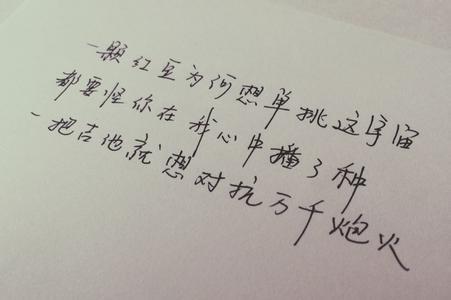 一颗红豆为何想单挑这宇宙
都要怪你在我心中播了种
一把吉他就想对抗万千炮火